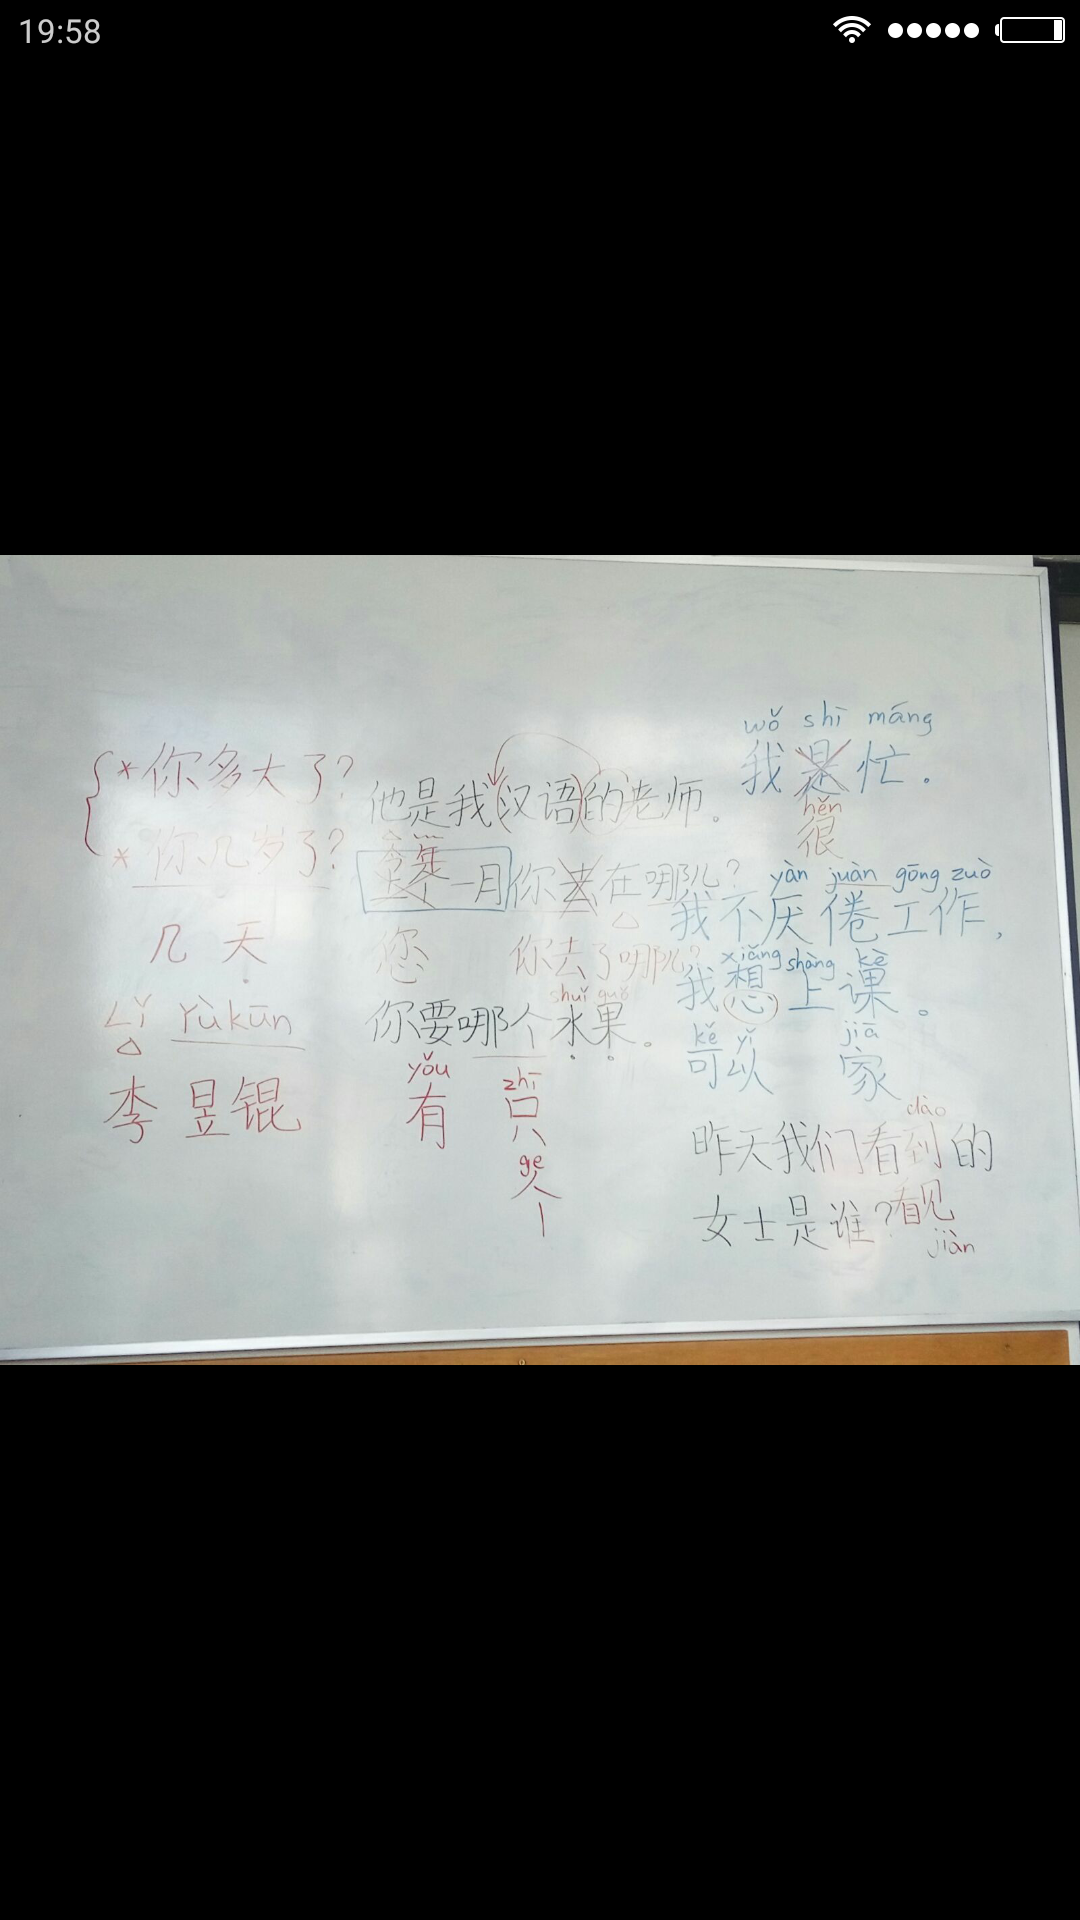 19:58
*你多大了?
*你几岁了?
几天
Lǐ Yùkūn
李昱锟
他是我(汉语)的老师。
今年
上个一月你去在哪儿?
您 你去了哪儿?
shuǐ guǒ
你要哪个水果。
yǒu zhī
有 只
ge
个
wǒ shì máng
我是忙。
hěn
很
yàn juàn gōng zuò
我不厌倦工作,
xiǎng shàng kè
我想上课。
kě yǐ jiā
可以 家
dào
昨天我们看到的
女士是谁?看见
jiàn